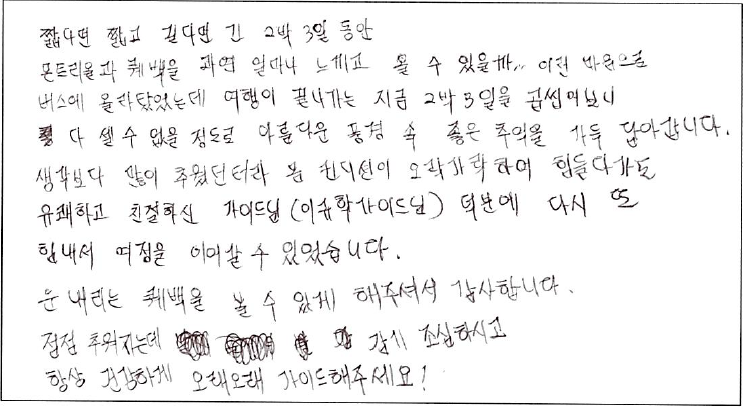 짧다면 짧고 길다면 긴 2박 3일 동안
몬트리올과 퀘백을 과연 얼마나 느끼고 올 수 있을까... 이런 마음으로
버스에 올라탔었는데 여행이 끝나가는 지금 2박 3일을 곱씹어보니
다 셀 수 없을 정도로 아름다운 풍경 속 좋은 추억을 가득 담아갑니다.
생각보다 많이 추웠던터라 몸 컨디션이 오락가락하여 힘들다가도
유쾌하고 친절하신 가이드님 (이규학가이드님) 덕분에 다시 또
힘내서 여정을 이어갈 수 있었습니다.
눈 내리는 퀘백을 볼 수 있게 해주셔서 감사합니다.
점점 추워지는데 감기 조심하시고
항상 건강하게 오래오래 가이드해주세요!